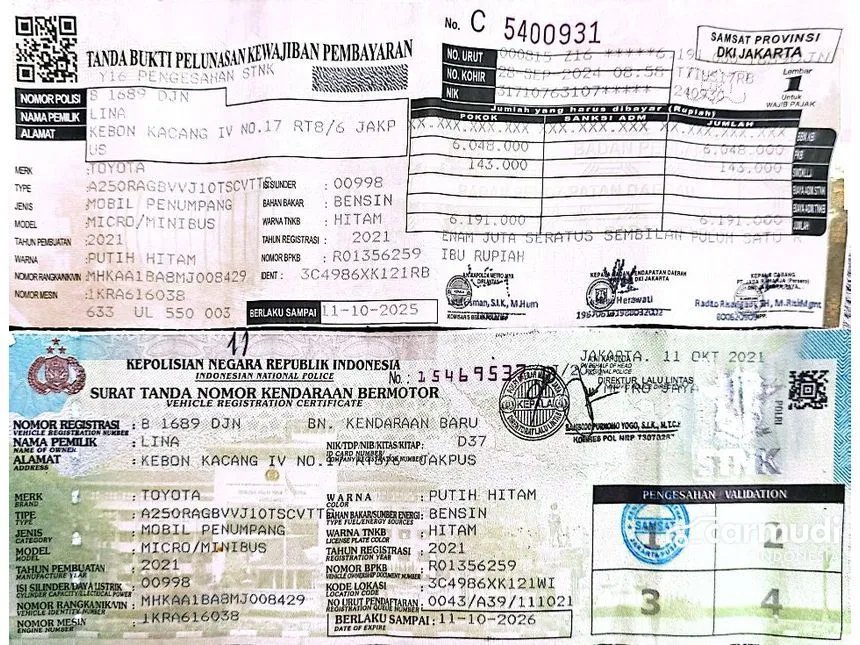 TANDA BUKTI PELUNASAN KEWAJIBAN PEMBAYARAN
No. C 5400931
SAMSAT PROVINSI
DKI JAKARTA
Y16 PENGESAHAN STNK
NO. URUT 000815 Z16 *****6.191
NO. KOHIR 28 SEP 2024 08.58
NIK 31710763107***** 240930
Lembar
1
Untuk
WAJIB PAJAK
NOMOR POLISI B 1689 DJN
NAMA PEMILIK LINA
ALAMAT KEBON KACANG IV NO.17 RT8/6 JAKP
US
Jumlah yang harus dibayar (Rupiah)
POKOK SANKSI ADM JUMLAH
XX.XXX.XXX.XXX XX.XXX.XXX.XXX XX.XXX.XXX.XXX
6.048.000 6.048.000 PKB
143.000 143.000
BIAYA ADM STNK
BIAYA ADM TNKB
6.191.000 6.191.000 JUMLAH
ENAM JUTA SERATUS SEMBILAN PULUH SATU R
IBU RUPIAH
MERK : TOYOTA
TYPE : A250RAGBVVJ10TSCVTTS ISI SILINDER : 00998
JENIS : MOBIL PENUMPANG BAHAN BAKAR : BENSIN
MODEL : MICRO/MINIBUS WARNA TNKB : HITAM
TAHUN PEMBUATAN : 2021 TAHUN REGISTRASI : 2021
WARNA : PUTIH HITAM NOMOR BPKB : R01356259
NOMOR RANGKA/NIK/VIN : MHKAA1BA8MJ008429 IDENT : 3C4986XK121RB
NOMOR MESIN : 1KRA616038
633 UL 550 003 BERLAKU SAMPAI 11-10-2025
KEPALA BADAN PENDAPATAN DAERAH
DKI JAKARTA
KEPALA CABANG
Herawati
11
KEPOLISIAN NEGARA REPUBLIK INDONESIA
INDONESIAN NATIONAL POLICE
No.: 15469537
SURAT TANDA NOMOR KENDARAAN BERMOTOR
VEHICLE REGISTRATION CERTIFICATE
JAKARTA. 11 OKT 2021
DIREKTUR LALU LINTAS
METRO JAYA
KEPALA
SAMBODO PURNOMO YOGO, S.I.K., M.T.C.P.
NOMOR REGISTRASI : B 1689 DJN BN. KENDARAAN BARU
VEHICLE REGISTRATION NUMBER
NAMA PEMILIK : LINA NIK/TDP/NIB/KITAS/KITAP : D37
NAME OF OWNER ID CARD NUMBER/
ALAMAT : KEBON KACANG IV NO.17 RT8/6 JAKPUS
ADDRESS
STNK
POLRI
MERK : TOYOTA WARNA : PUTIH HITAM
BRAND COLOR
TIPE : A250RAGBVVJ10TSCVTTS BAHAN BAKAR/SUMBER ENERGI : BENSIN
TYPE TYPE FUEL/ENERGY SOURCES
JENIS : MOBIL PENUMPANG WARNA TNKB : HITAM
CATEGORY LICENSE PLATE COLOR
MODEL : MICRO/MINIBUS TAHUN REGISTRASI : 2021
MODEL REGISTRATION YEAR
TAHUN PEMBUATAN : 2021 NOMOR BPKB : R01356259
MANUFACTURE YEAR VEHICLE OWNERSHIP DOCUMENT NUMBER
ISI SILINDER/DAYA LISTRIK : 00998 KODE LOKASI : 3C4986XK121WI
CYLINDER CAPACITY/ELECTICAL POWER LOCATION CODE
NOMOR RANGKA/VIN : MHKAA1BA8MJ008429 NO URUT PENDAFTARAN : 0043/A39/111021
VEHICLE IDENTITY NUMBER REGISTRATION QUEUE NUMBER
NOMOR MESIN : 1KRA616038 BERLAKU SAMPAI : 11-10-2026
ENGINE NUMBER DATE OF EXPIRE
PENGESAHAN VALIDATION
1 2
SAMSAT
3 4
carmudi